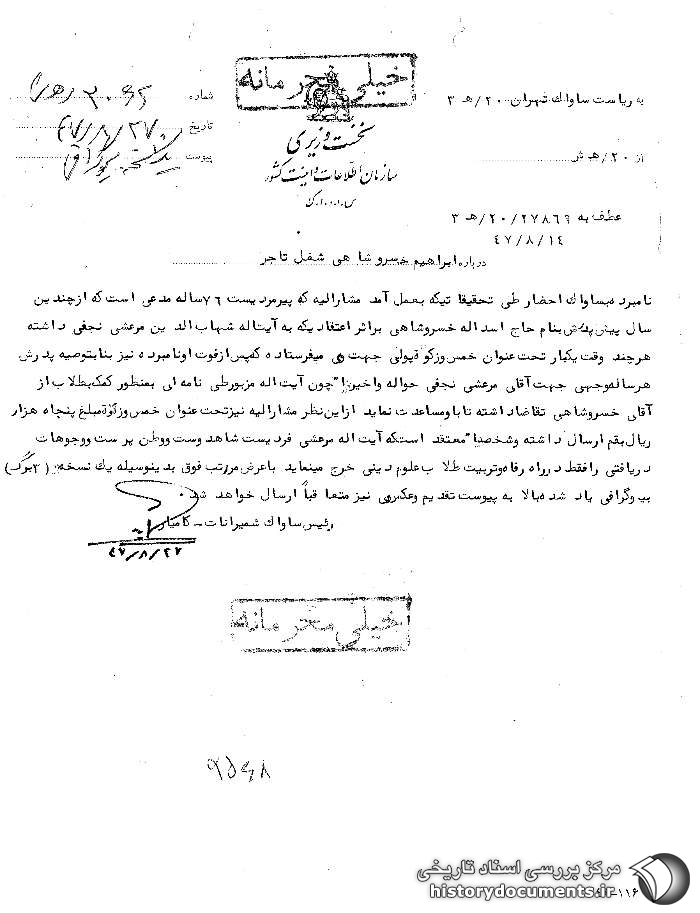 خیلی محرمانه
به ریاست ساواك تهران ۲۰/هـ ۳
از ۲۰/هـ ش
شماره
تاریخ ۴۷/۸/۲۷
پیوست
نخست وزیری
سازمان اطلاعات و امنیت کشور
س.ا.و.ا.ك
عطف به ۲۰/۲۷۸۶۹/هـ ۳
۴۷/۸/۱٤
درباره ابراهیم خسروشاهی شغل تاجر
نامبرده بساواك احضار طی تحقیقاتیکه بعمل آمد مشارالیه که پیرمردیست ۷۶ ساله مدعی است که از چندین
سال پیش پدرش بنام حاج اسداله خسروشاهی براثر اعتقادیکه به آیت اله شهاب الدین مرعشی نجفی داشته
هرچند وقت یکبار تحت عنوان خمس وزکوة پولی جهت وی میفرستاده که پس از فوت او نامبرده نیز بنا بتوصیه پدرش
هرساله وجهی جهت آقای مرعشی نجفی حواله و اخیرا" چون آیت اله مزبور طی نامه ای بمنظور کمک بطلاب از
آقای خسروشاهی تقاضا داشته تا باو مساعدت نماید ازاین نظر مشارالیه نیز تحت عنوان خمس وزکوة مبلغ پنجاه هزار
ریال بقم ارسال داشته وشخصا" معتقد استکه آیت اله مرعشی فردیست شاهدوست ووطن پرست ووجوهات
دریافتی را فقط در راه رفاه وتربیت طلاب علوم دینی خرج مینماید باعرض مراتب فوق بدینوسیله یك نسخه (۲برگ)
بیوگرافی یاد شده بالا به پیوست تقدیم وعکس وی نیز متعاقباً ارسال خواهد شد.
رئیس ساواك شمیرانات ـ کامیار
۴۷/۸/۲۷
خیلی محرمانه
مرکز بررسی اسناد تاریخی
historydocuments.ir